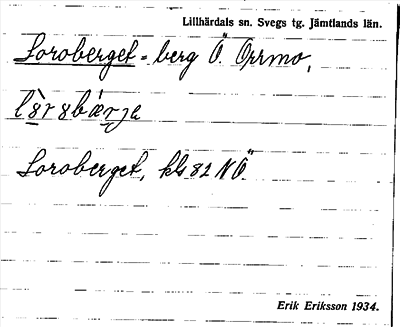 Lillhärdals sn. Svegs tg. Jämtlands län.
Loroberget = berg Ö. Orrmo,
Loroberget, kbl 82 NÖ.
Erik Eriksson 1934.